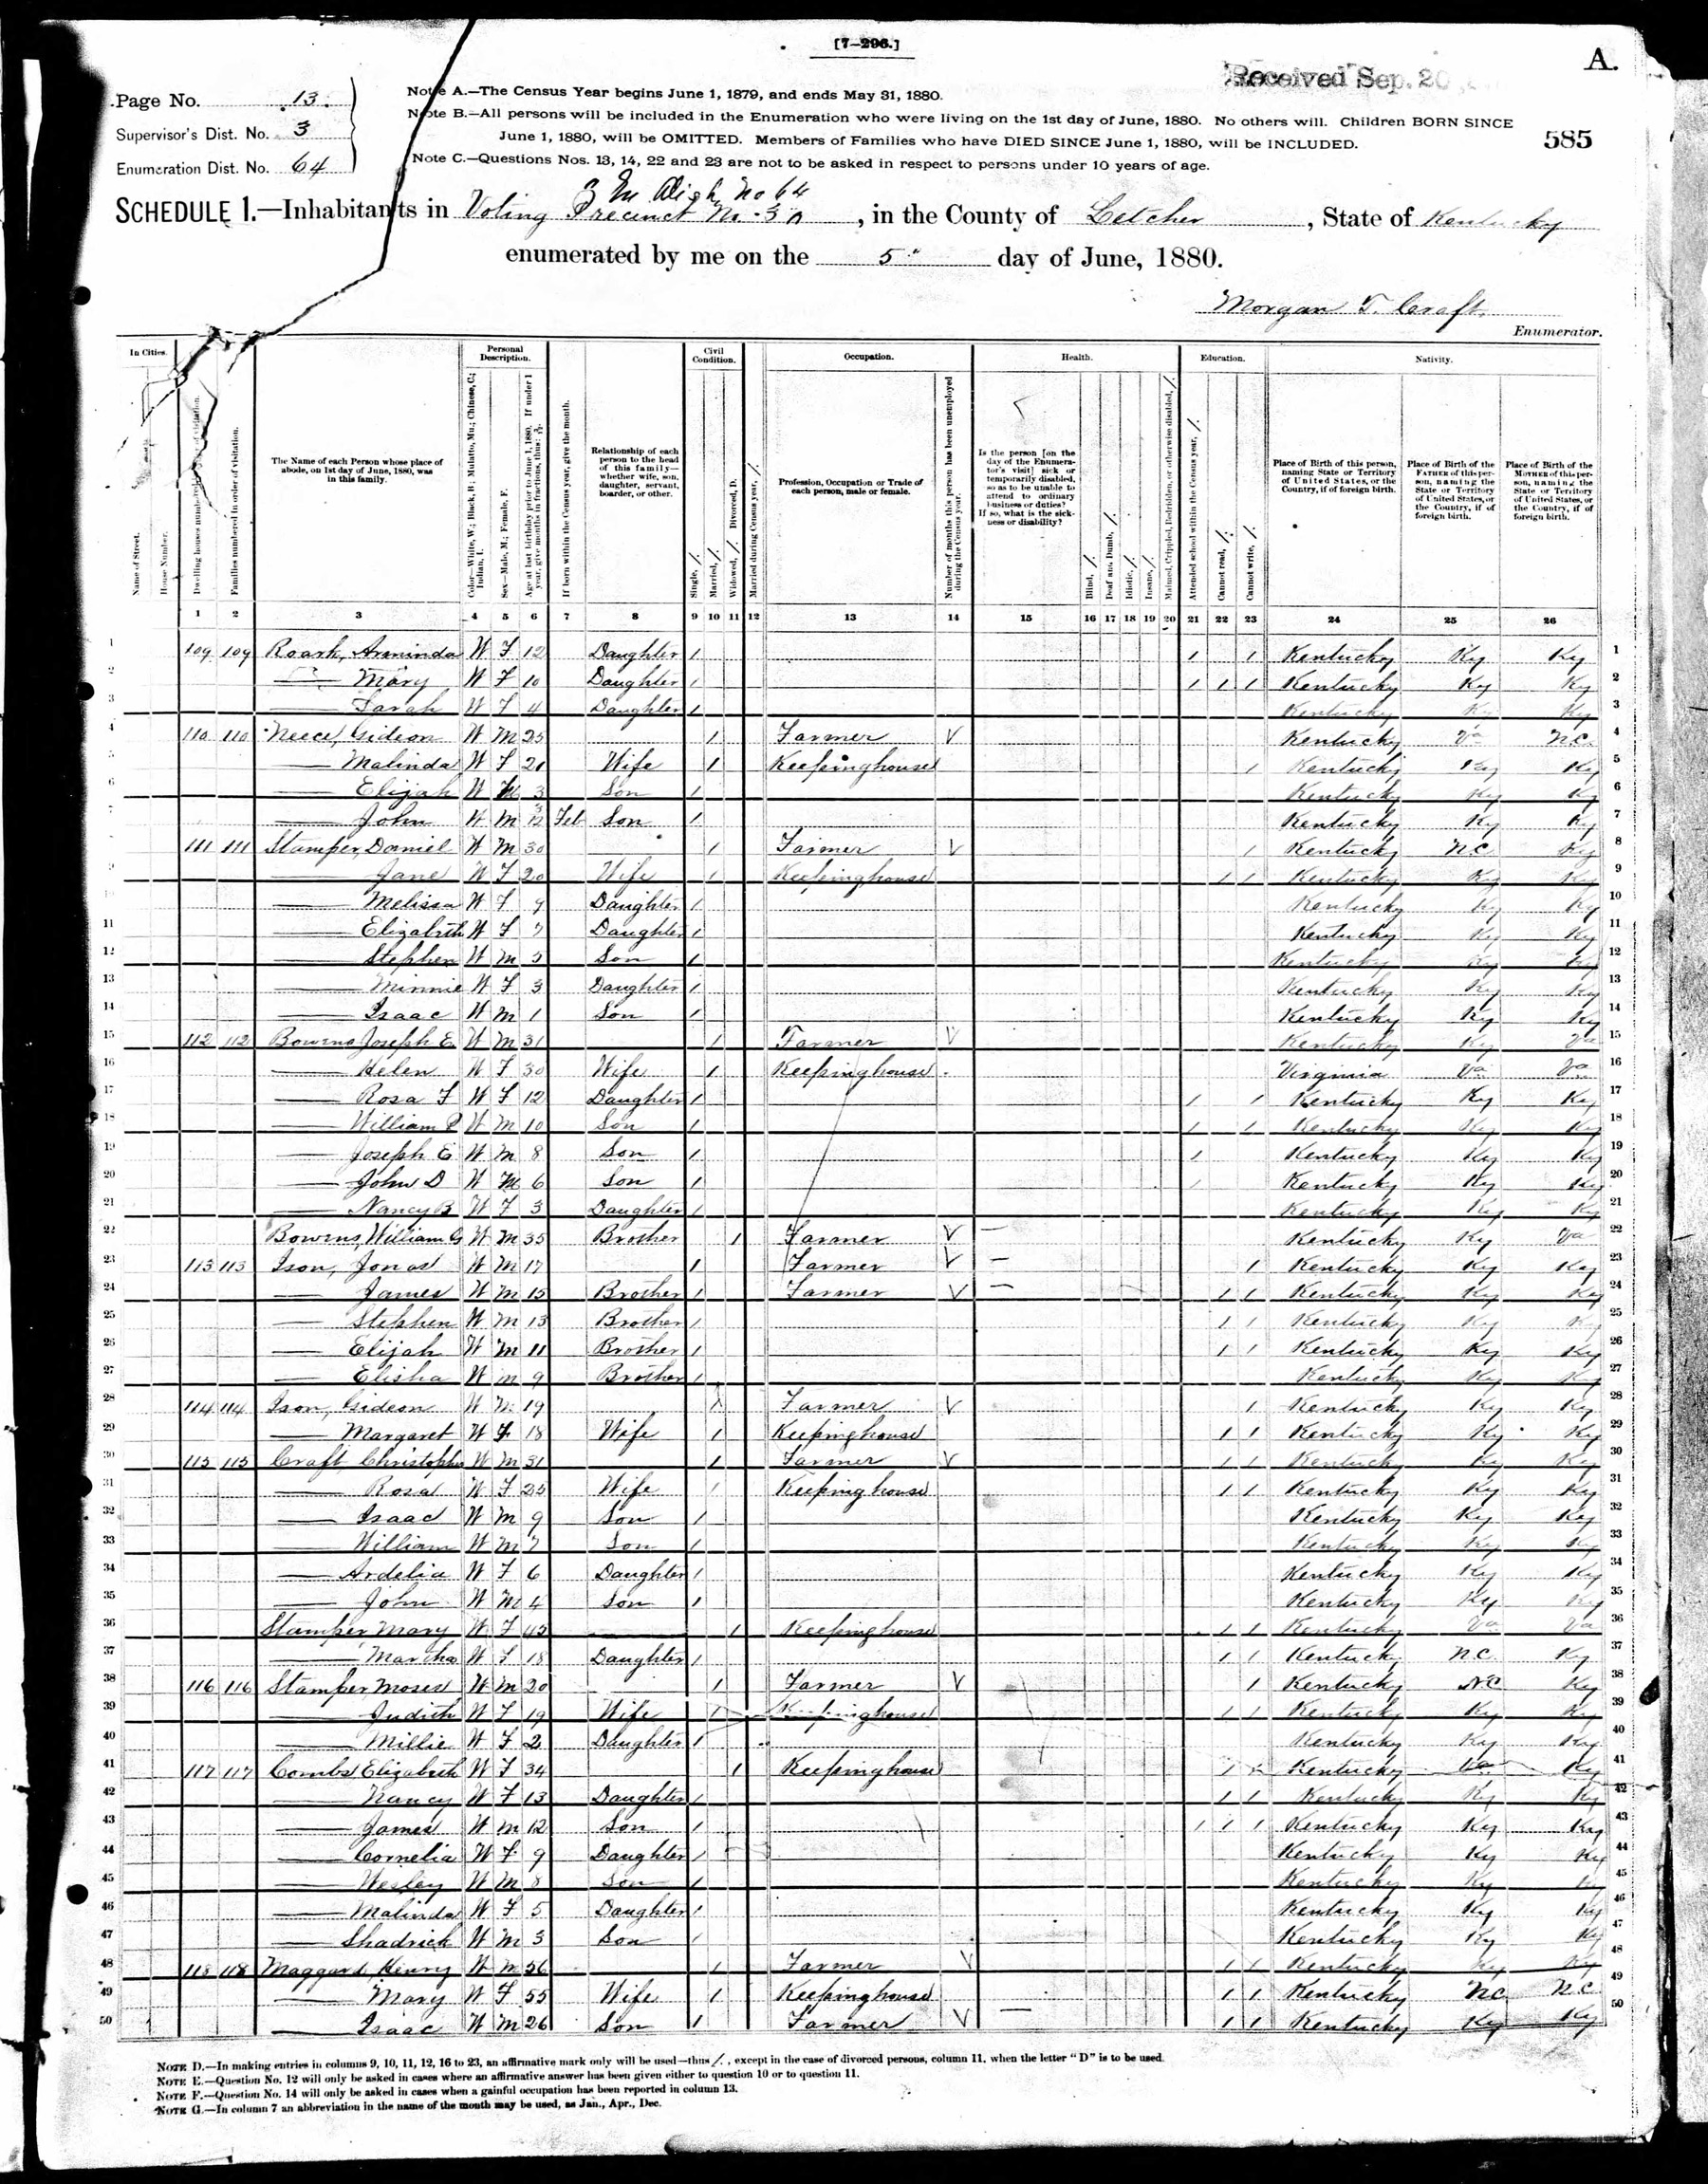 [7-296.]
A.
Received Sep. 20
Page No. 13
Supervisor's Dist. No. 3
Enumeration Dist. No. 64
Note A.—The Census Year begins June 1, 1879, and ends May 31, 1880.
Note B.—All persons will be included in the Enumeration who were living on the 1st day of June, 1880. No others will. Children BORN SINCE
June 1, 1880, will be OMITTED. Members of Families who have DIED SINCE June 1, 1880, will be INCLUDED.
Note C.—Questions Nos. 13, 14, 22 and 23 are not to be asked in respect to persons under 10 years of age.
585
No 64
SCHEDULE 1.—Inhabitants in Voting Precinct No. 3, in the County of Letcher, State of Kentucky
enumerated by me on the 5" day of June, 1880.
Morgan T. Craft.
Enumerator.
In Cities. Personal Description. Civil Condition. Occupation. Health. Education. Nativity.
Name of Street.
House Number.
Dwelling houses numbered in order of visitation.
Families numbered in order of visitation.
The Name of each Person whose place of abode, on 1st day of June, 1880, was in this family.
Color—White, W.; Black, B.; Mulatto, Mu.; Chinese, C.; Indian, I.
Sex—Male, M.; Female, F.
Age at last birthday prior to June 1, 1880. If under 1 year, give months in fractions, thus: 3/12.
If born within the Census year, give the month.
Relationship of each person to the head of this family—whether wife, son, daughter, servant, boarder, or other.
Single, /.
Married, /.
Widowed, /. Divorced, D.
Married during Census year, /.
Profession, Occupation or Trade of each person, male or female.
Number of months this person has been unemployed during the Census year.
Is the person [on the day of the Enumerator's visit] sick or temporarily disabled, so as to be unable to attend to ordinary business or duties? If so, what is the sickness or disability?
Blind, /.
Deaf and Dumb, /.
Idiotic, /.
Insane, /.
Maimed, Crippled, Bedridden, or otherwise disabled, /.
Attended school within the Census year, /.
Cannot read, /.
Cannot write, /.
Place of Birth of this person, naming State or Territory of United States, or the Country, if of foreign birth.
Place of Birth of the FATHER of this person, naming the State or Territory of United States, or the Country, if of foreign birth.
Place of Birth of the MOTHER of this person, naming the State or Territory of United States, or the Country, if of foreign birth.
1 2 3 4 5 6 7 8 9 10 11 12 13 14 15 16 17 18 19 20 21 22 23 24 25 26
1 109 109 Roark, Arminda W F 12 Daughter / / / Kentucky Ky Ky 1
2 — Mary W F 10 Daughter / / / / Kentucky Ky Ky 2
3 — Sarah W F 4 Daughter / Kentucky Ky Ky 3
4 110 110 Neece, Gideon W M 25 / Farmer V Kentucky Va N.C. 4
5 — Malinda W F 21 Wife / Keepinghouse / Kentucky Ky Ky 5
6 — Elijah W M 3 Son / Kentucky Ky Ky 6
7 — John W M 3/12 Feb Son / Kentucky Ky Ky 7
8 111 111 Stamper, Daniel W M 30 / Farmer V / Kentucky N.C. Ky 8
9 — Jane W F 20 Wife / Keepinghouse / / Kentucky Ky Ky 9
10 — Melissa W F 9 Daughter / Kentucky Ky Ky 10
11 — Elizabeth W F 7 Daughter / Kentucky Ky Ky 11
12 — Stephen W M 5 Son / Kentucky Ky Ky 12
13 — Minnie W F 3 Daughter / Kentucky Ky Ky 13
14 — Isaac W M 1 Son / Kentucky Ky Ky 14
15 112 112 Bowens Joseph E W M 31 / Farmer V Kentucky Ky Va 15
16 — Helen W F 30 Wife / Keepinghouse Virginia Va Va 16
17 — Rosa F W F 12 Daughter / / / Kentucky Ky Ky 17
18 — William P W M 10 Son / / / Kentucky Ky Ky 18
19 — Joseph E W M 8 Son / / Kentucky Ky Ky 19
20 — John D W M 6 Son / / Kentucky Ky Ky 20
21 — Nancy B W F 3 Daughter / Kentucky Ky Ky 21
22 Bowens, William G W M 35 Brother / Farmer V — Kentucky Ky Va 22
23 113 113 Ison, Jonas W M 17 / Farmer V — / Kentucky Ky Ky 23
24 — James W M 15 Brother / Farmer V — / / Kentucky Ky Ky 24
25 — Stephen W M 13 Brother / / / Kentucky Ky Ky 25
26 — Elijah W M 11 Brother / / / Kentucky Ky Ky 26
27 — Elisha W M 9 Brother / Kentucky Ky Ky 27
28 114 114 Ison, Gideon W M 19 / Farmer V / Kentucky Ky Ky 28
29 — Margaret W F 18 Wife / Keepinghouse / / Kentucky Ky Ky 29
30 115 115 Craft Christopher W M 31 / Farmer V / / Kentucky Ky Ky 30
31 — Rosa W F 25 Wife / Keepinghouse / / Kentucky Ky Ky 31
32 — Isaac W M 9 Son / Kentucky Ky Ky 32
33 — William W M 7 Son / Kentucky Ky Ky 33
34 — Ardelia W F 6 Daughter / Kentucky Ky Ky 34
35 — John W M 4 Son / Kentucky Ky Ky 35
36 Stamper Mary W F 45 / Keepinghouse / / Kentucky Va Va 36
37 — Martha W F 18 Daughter / / / Kentucky N.C. Ky 37
38 116 116 Stamper, Moses W M 20 / Farmer V / Kentucky N.C. Ky 38
39 — Judith W F 19 Wife / Keepinghouse / / Kentucky Ky Ky 39
40 — Millie W F 2 Daughter / Kentucky Ky Ky 40
41 117 117 Combs Elizabeth W F 34 / Keepinghouse / / Kentucky Va Ky 41
42 — Nancy W F 13 Daughter / / / Kentucky Ky Ky 42
43 — James W M 12 Son / / / / Kentucky Ky Ky 43
44 — Cornelia W F 9 Daughter / Kentucky Ky Ky 44
45 — Wesley W M 8 Son / Kentucky Ky 45
46 — Malinda W F 5 Daughter / Kentucky Ky Ky 46
47 — Shadrick W M 3 Son / Kentucky Ky Ky 47
48 118 118 Maggard, Henry W M 56 / Farmer V / / Kentucky Ky Ky 48
49 — Mary W F 55 Wife / Keepinghouse / / Kentucky N.C. N.C. 49
50 — Isaac W M 26 Son / Farmer V — / / Kentucky Ky Ky 50
NOTE D.—In making entries in columns 9, 10, 11, 12, 16 to 23, an affirmative mark only will be used—thus /., except in the case of divorced persons, column 11, when the letter "D" is to be used.
NOTE E.—Question No. 12 will only be asked in cases where an affirmative answer has been given either to question 10 or to question 11.
NOTE F.—Question No. 14 will only be asked in cases when a gainful occupation has been reported in column 13.
NOTE G.—In column 7 an abbreviation in the name of the month may be used, as Jan., Apr., Dec.